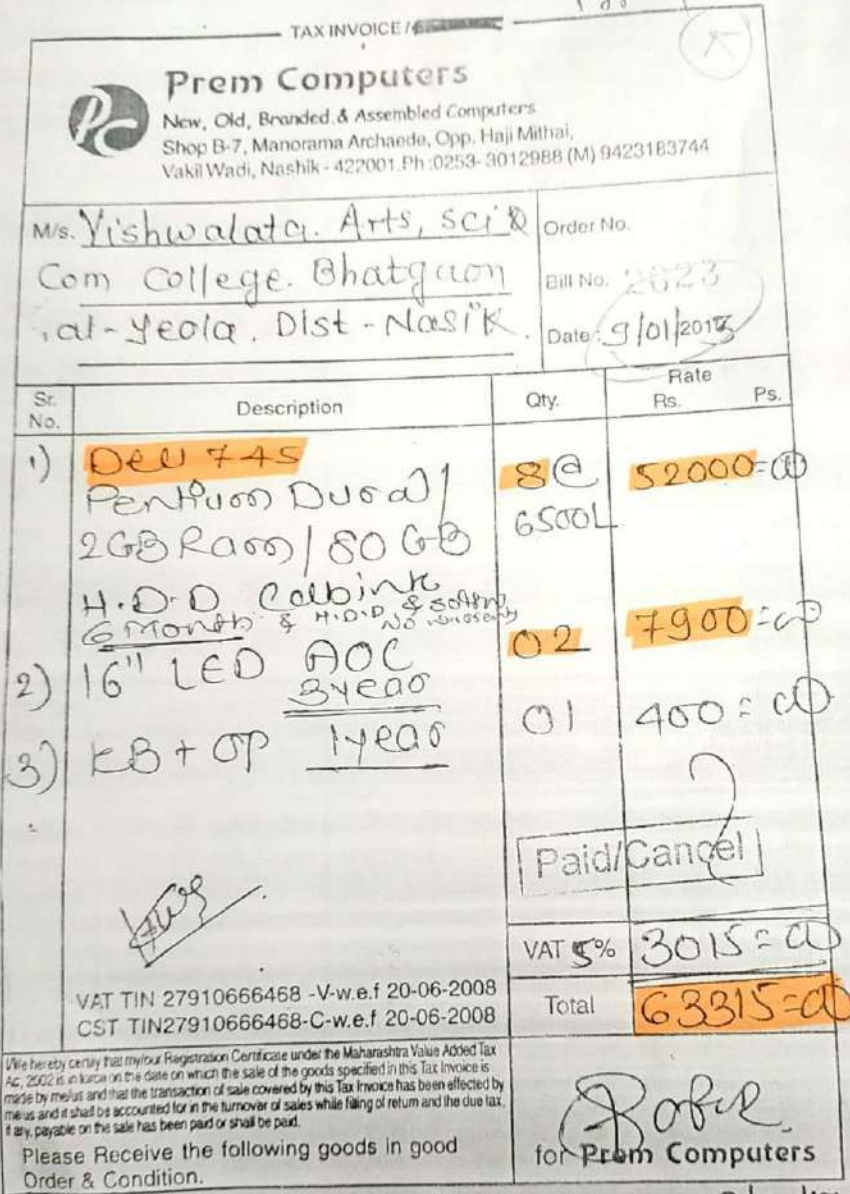 TAX INVOICE /
PC
Prem Computers
New, Old, Branded & Assembled Computers
Shop B-7, Manorama Archaede, Opp. Haji Mithai,
Vakil Wadi, Nashik - 422001. Ph :0253- 3012988 (M) 9423183744
M/s. Vishwalata. Arts, sci &
Com College. Bhatgaon
.al-Yeola. Dist - Nasik.
Order No.
Bill No. 2623
Date : 9/01/201
Sr. No. Description Qty. Rate Rs. Ps.
1) Dell 745 8@ 52000=00
Pentium Dual / 6500L
2GB Ram / 80 GB
H.D.D
6 Month & H.D.D & No
2) 16" LED AOC 02 7900=00
3year
3) KB + OP 1year 01 400=00
Paid/Cancel
VAT 5% 3015=00
VAT TIN 27910666468 -V-w.e.f 20-06-2008
CST TIN27910666468-C-w.e.f 20-06-2008
Total 63315=00
I/We hereby certify that my/our Registration Certificate under the Maharashtra Value Added Tax
Ac, 2002 is in force on the date on which the sale of the goods specified in this Tax Invoice is
made by me/us and that the transaction of sale covered by this Tax Invoice has been effected by
me us and it shall be accounted for in the turnover of sales while filing of return and the due tax,
if any, payable on the sale has been paid or shall be paid.
Please Receive the following goods in good
Order & Condition.
for Prem Computers